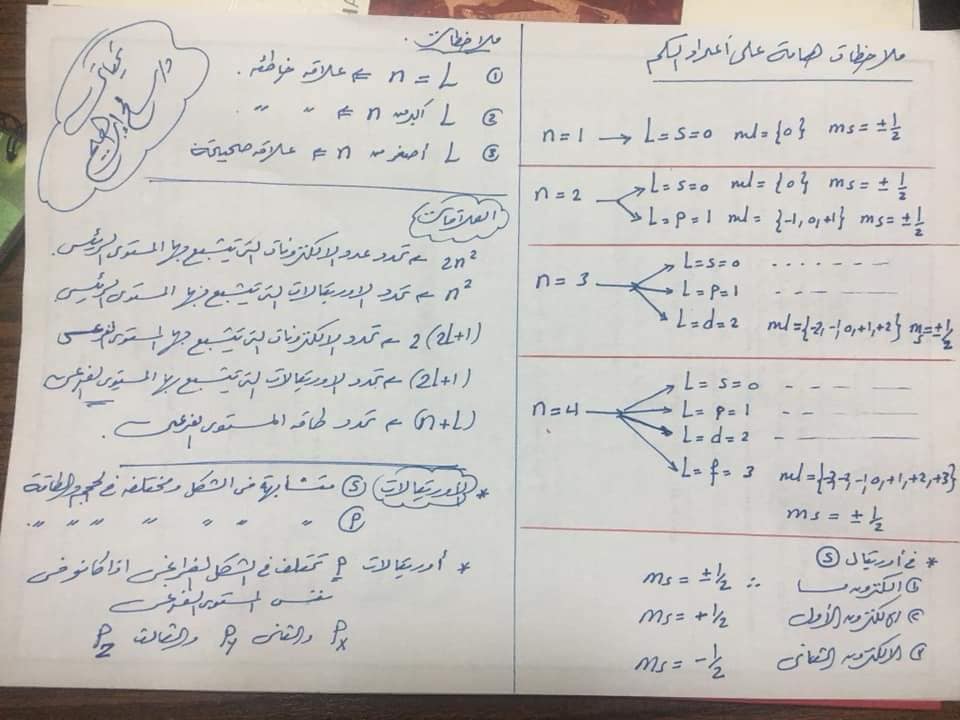 ملاحظات هامة على أعداد الكم
n = 1 → L = s = 0 ml = {0} ms = ± 1/2
n = 2
L = s = 0 ml = {0} ms = ± 1/2
L = P = 1 ml = {-1, 0, +1} ms = ± 1/2
n = 3
L = s = 0 - - - - - - -
L = P = 1 - - - - - -
L = d = 2 ml = {-2, -1, 0, +1, +2} ms = ± 1/2
n = 4
L = s = 0 - - - - - -
L = P = 1 - - - - - -
L = d = 2 - - - - - -
L = f = 3 ml = {-3, -2, -1, 0, +1, +2, +3}
ms = ± 1/2
* في أوربيتال (S)
① الكترون ما ∴ ms = ± 1/2
② الالكترون الأول ms = + 1/2
③ الالكترون الثانى ms = - 1/2
ملاحظات :
① n = L ⇐ علاقه خاطئه .
② L أكبر من n ⇐ " "
③ L أصغر من n ⇐ علاقه صحيحة
العلاقات
2n² ← تحدد عدد الالكترونات التى يتشبع بها المستوى الرئيسى .
n² ← تحدد الاوربيتالات التى يتشبع بها المستوى الرئيسى
2 (2L+1) ← تحدد الالكترونات التى يتشبع بها المستوى الفرعى
(2L+1) ← تحدد الاوربيتالات التى يتشبع بها المستوى الفرعى
(n+L) ← تحدد طاقه المستوى الفرعى .
* الأوربيتالات (S) متشابهة فى الشكل ومختلفه فى الحجم والطاقة
(P) " " " " " " "
* أوربيتالات P تختلف فى الشكل الفراغى اذا كانو فى
نفس المستوى الفرعى
Px والثانى Py والثالث Pz